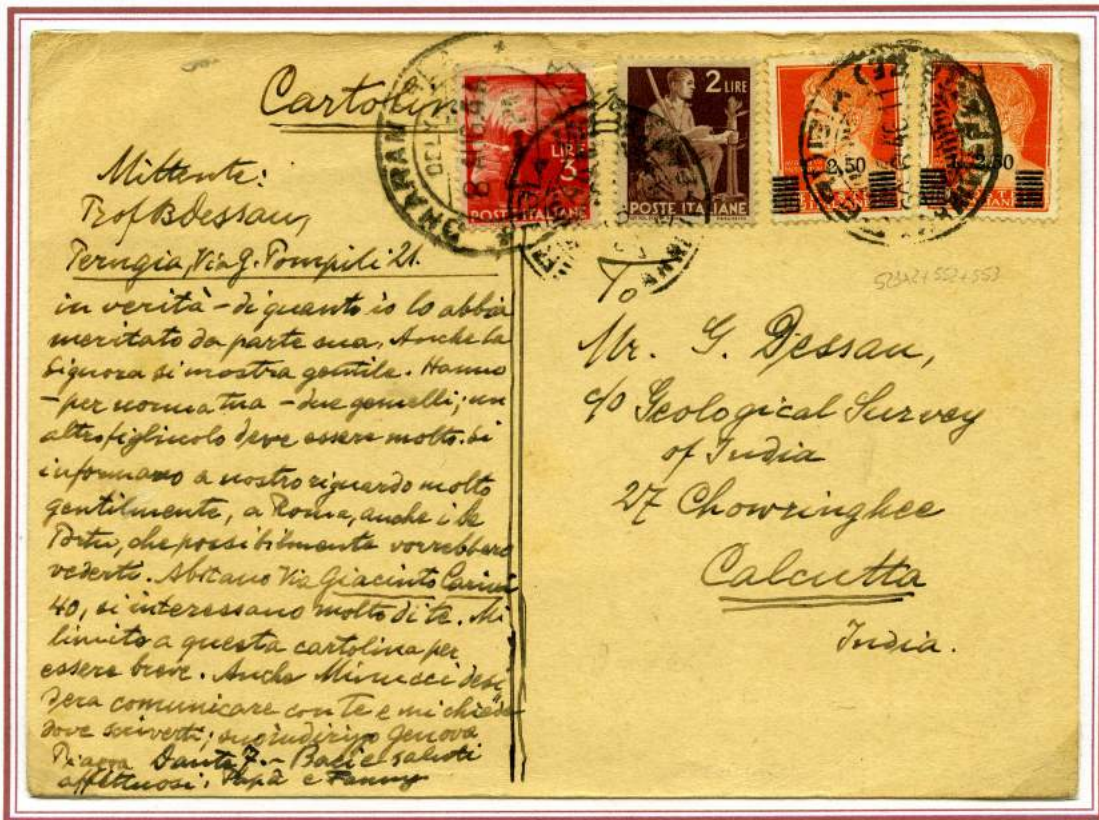 Cartolin
Mittente:
Prof B Dessau,
Perugia, Via G. Pompili 21.
in verità - di quanto io lo abbia
meritato da parte sua. Anche la
Signora si mostra gentile. Hanno
- per norma tua - due gemelli; un
altro figliuolo deve essere molto. Si
informano a nostro riguardo molto
gentilmente, a Roma, anche i
che possibilmente vorrebbero
vederti. Abitano Via Giacinto Carini
40, si interessano molto di te. Mi
limito a questa cartolina per
essere breve. Anche Minucci desi
dera comunicare con te e mi chiede
dove scriverti; suo indirizzo Genova
Piazza Dante 7. - Baci e saluti
affettuosi, Papà e Fanny
LIRE
3
POSTE ITALIANE
2 LIRE
POSTE ITALIANE
2,50
2,50
523x2+552+553
To
Mr. G. Dessau,
c/o Geological Survey
of India
27 Chowringhee
Calcutta
India.